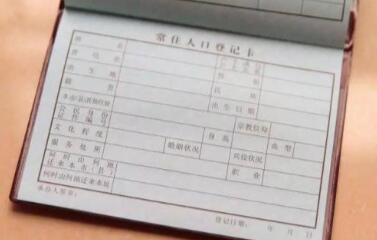 常住人口登记卡
姓 名
曾 用 名
性 别
出 生 地
民 族
籍 贯
出生日期
本市(县)其他住址
宗教信仰
公民身份证件编号
身 高
血 型
文化程度
婚姻状况
兵役状况
服务处所
职 业
何时由何地迁来本市(县)
何时由何地迁来本址
承办人签章:
登记日期: 年 月 日